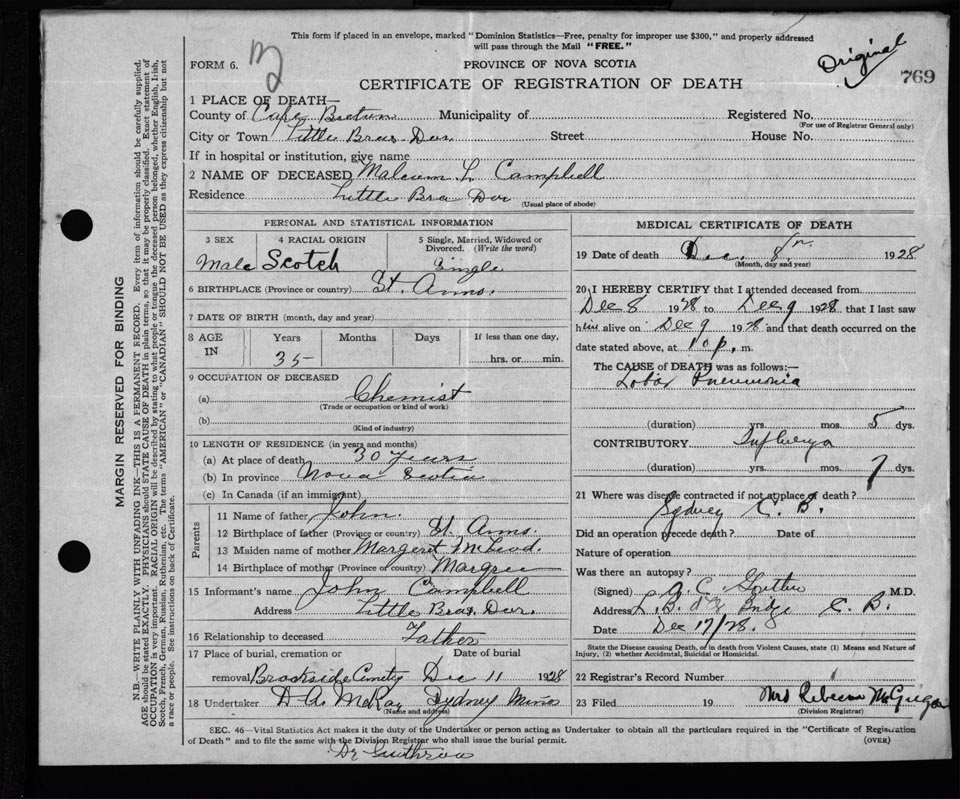 This form if placed in an envelope, marked "Dominion Statistics—Free, penalty for improper use $300," and properly addressed
will pass through the Mail "FREE."
Original
FORM 6.
PROVINCE OF NOVA SCOTIA
CERTIFICATE OF REGISTRATION OF DEATH
769
1 PLACE OF DEATH—
County of Cape Breton Municipality of Registered No.
(For use of Registrar General only)
City or Town Little Bras Dor Street House No.
If in hospital or institution, give name
2 NAME OF DECEASED Malcum L. Campbell
Residence Little Bra Dor
(Usual place of abode)
PERSONAL AND STATISTICAL INFORMATION
3 SEX 4 RACIAL ORIGIN 5 Single, Married, Widowed or Divorced. (Write the word)
Male Scotch Single
6 BIRTHPLACE (Province or country) St. Anns.
7 DATE OF BIRTH (month, day and year)
8 AGE IN Years Months Days If less than one day,
35 hrs. or min.
9 OCCUPATION OF DECEASED
(a) Chemist
(Trade or occupation or kind of work)
(b)
(Kind of industry)
10 LENGTH OF RESIDENCE (in years and months)
(a) At place of death 30 years
(b) In province Nova Scotia
(c) In Canada (if an immigrant)
Parents
11 Name of father John.
12 Birthplace of father (Province or country) St. Anns.
13 Maiden name of mother Margaret McLeod.
14 Birthplace of mother (Province or country) Margree
15 Informant's name John Campbell
Address Little Bras Dor.
16 Relationship to deceased Father
17 Place of burial, cremation or Date of burial
removal Brookside Cemetry Dec 11 1928
18 Undertaker D A. McKay Sydney Mines
(Name and address)
MEDICAL CERTIFICATE OF DEATH
19 Date of death Dec. 8 1928
(Month, day and year)
20 I HEREBY CERTIFY that I attended deceased from
Dec 8 1928 to Dec 9 1928 that I last saw
him alive on Dec 9 1928 and that death occurred on the
date stated above, at 10 p. m.
The CAUSE of DEATH was as follows:—
Lobar Pneumonia
(duration) yrs. mos. 5 dys.
CONTRIBUTORY Influenza
(duration) yrs. mos. 7 dys.
21 Where was disease contracted if not at place of death?
Sydney C. B.
Did an operation precede death? Date of
Nature of operation
Was there an autopsy?
(Signed) M.D.
Address Bridge C. B.
Date Dec 17/28.
State the Disease causing Death, or in death from Violent Causes, state (1) Means and Nature of
Injury, (2) whether Accidental, Suicidal or Homicidal.
22 Registrar's Record Number 1
23 Filed 19 Mrs Rebecca McGregor
(Division Registrar)
SEC. 46—Vital Statistics Act makes it the duty of the Undertaker or person acting as Undertaker to obtain all the particulars required in the "Certificate of Registration
of Death" and to file the same with the Division Registrar who shall issue the burial permit. (OVER)
MARGIN RESERVED FOR BINDING
N.B.—WRITE PLAINLY WITH UNFADING INK—THIS IS A PERMANENT RECORD. Every item of information should be carefully supplied.
AGE should be stated EXACTLY. PHYSICIANS should STATE CAUSE OF DEATH in plain terms, so that it may be properly classified. Exact statement of
OCCUPATION is very important. RACIAL ORIGIN will be described by stating to what people or tongue the deceased person belonged, whether English, Irish,
Scotch, French, German, Russian, Ruthenian, etc. The terms "AMERICAN" or "CANADIAN" SHOULD NOT BE USED as they express citizenship but not
a race or people. See instructions on back of Certificate.